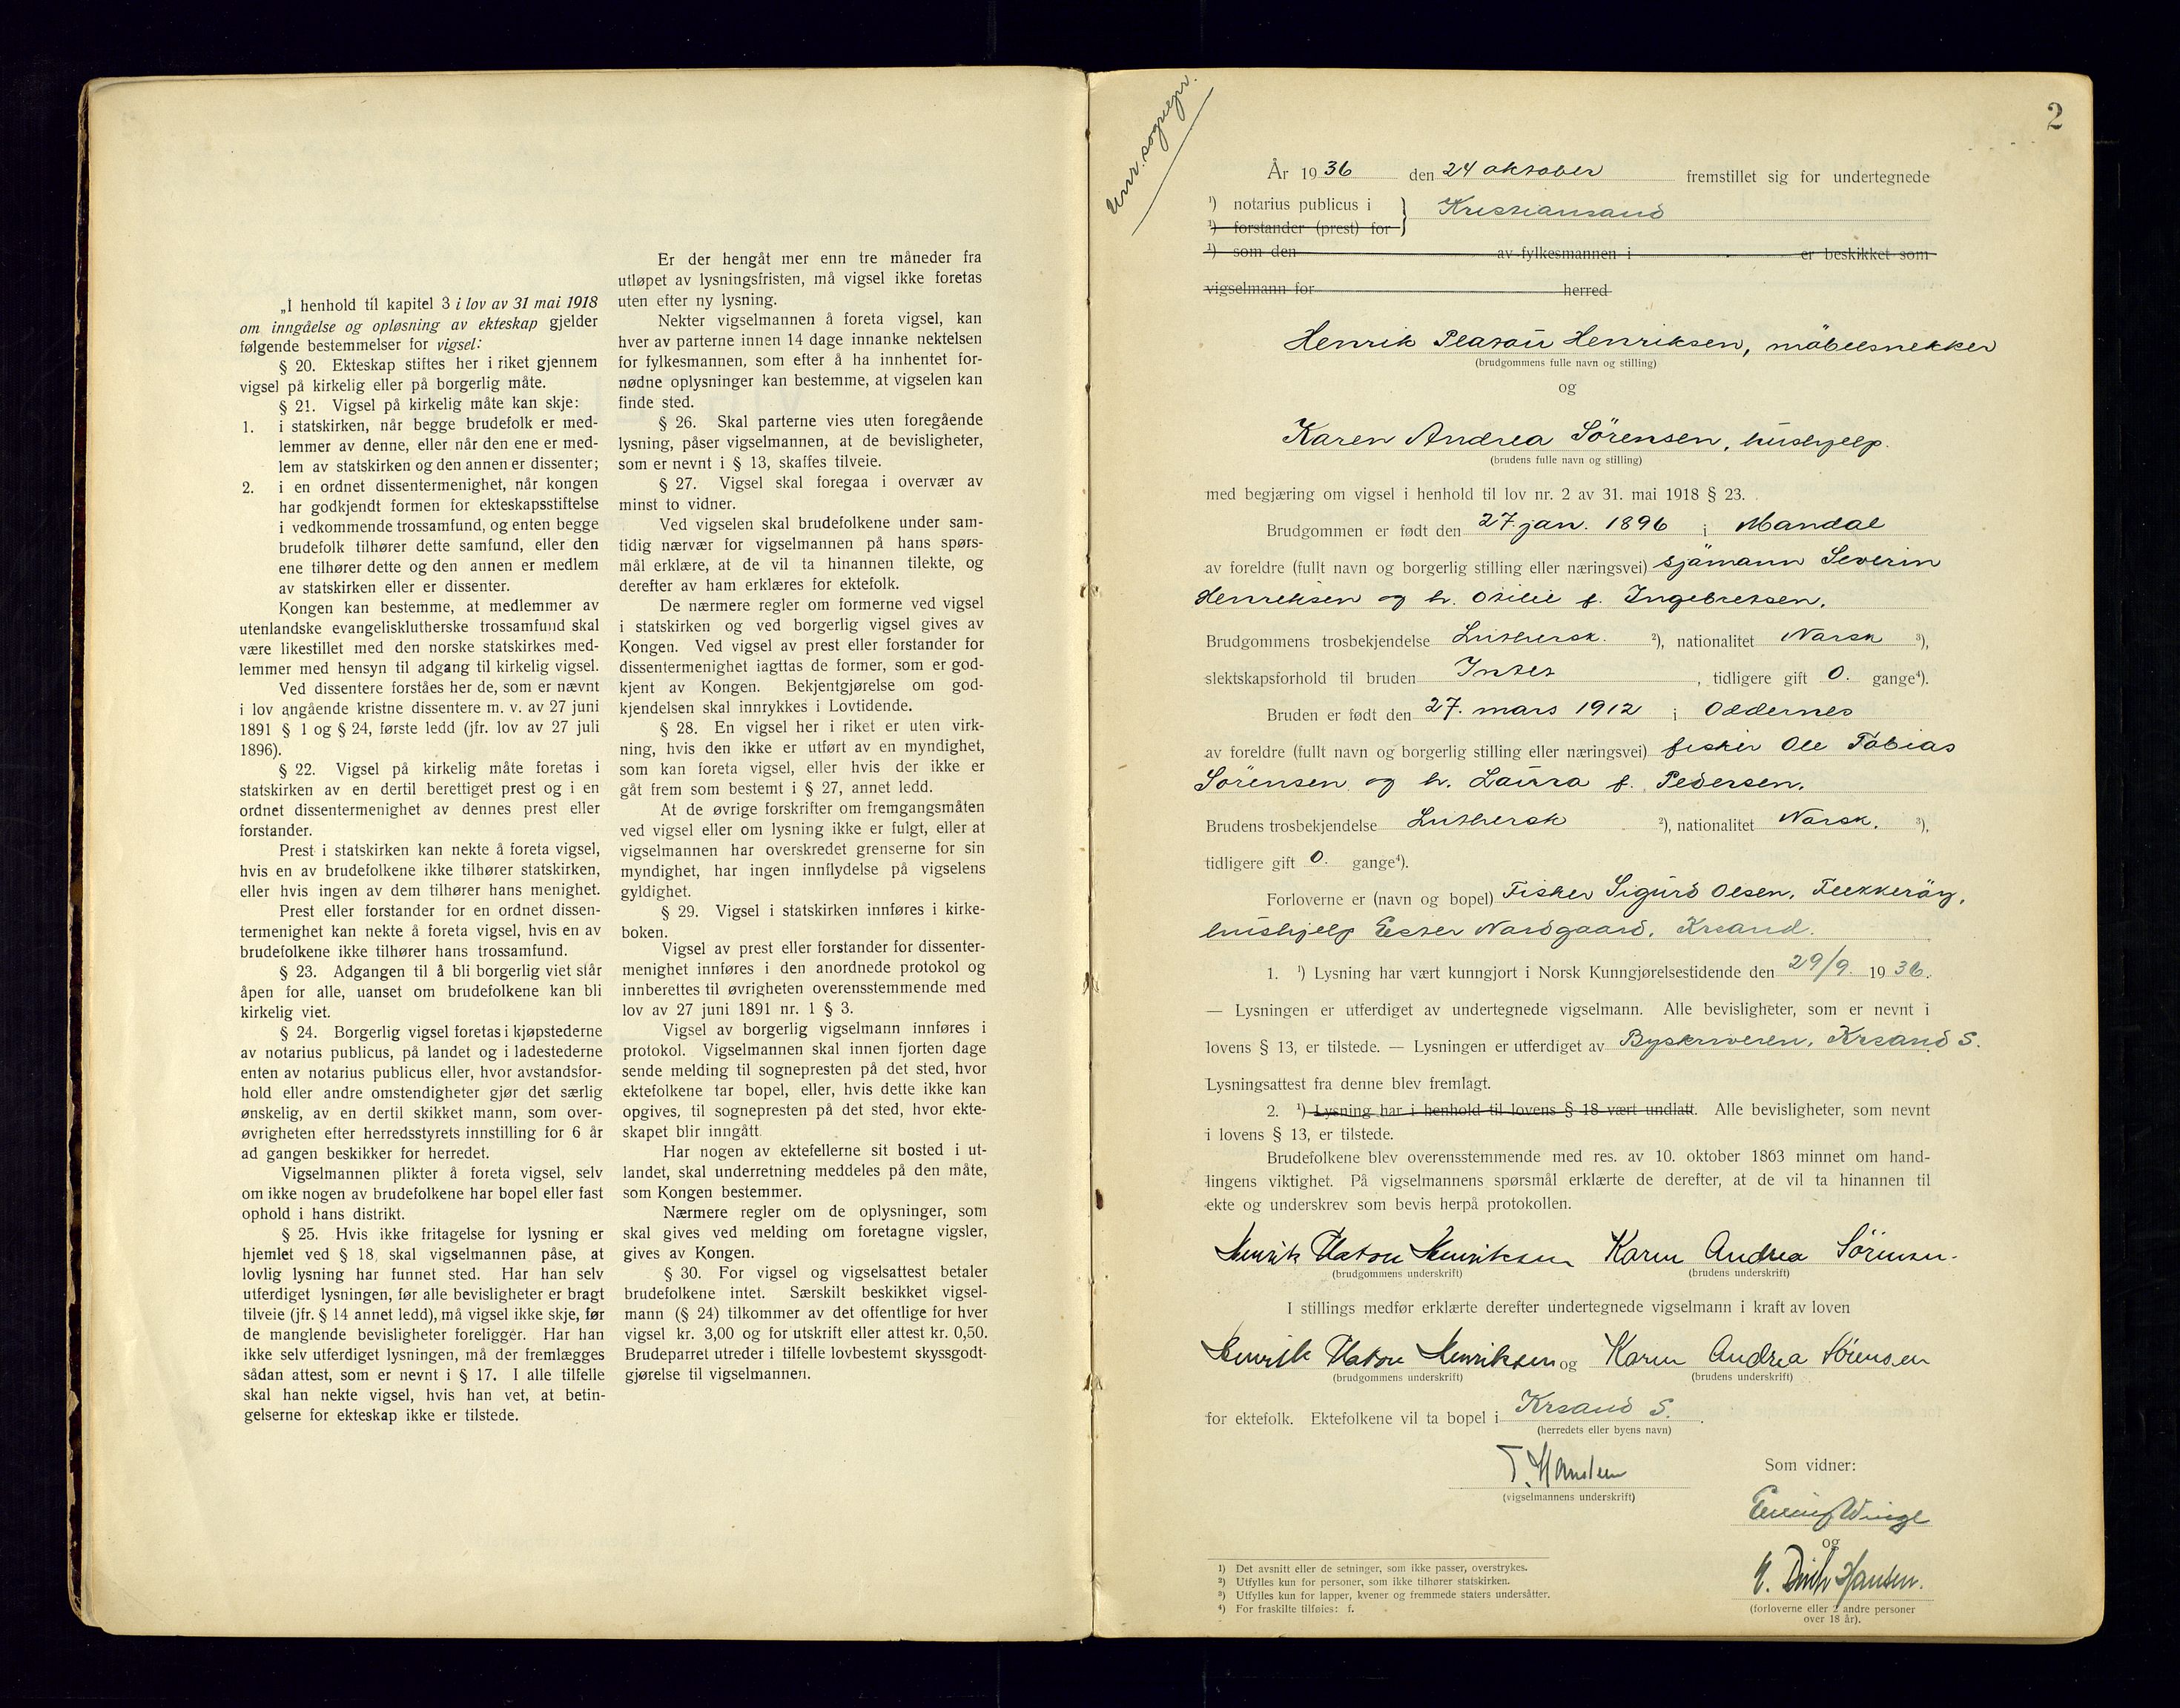 „I henhold til kapitel 3 i lov av 31 mai 1918
om inngåelse og opløsning av ekteskap gjelder
følgende bestemmelser for vigsel:
§ 20. Ekteskap stiftes her i riket gjennem
vigsel på kirkelig eller på borgerlig måte.
§ 21. Vigsel på kirkelig måte kan skje:
1. i statskirken, når begge brudefolk er med-
lemmer av denne, eller når den ene er med-
lem av statskirken og den annen er dissenter;
2. i en ordnet dissentermenighet, når kongen
har godkjendt formen for ekteskapsstiftelse
i vedkommende trossamfund, og enten begge
brudefolk tilhører dette samfund, eller den
ene tilhører dette og den annen er medlem
av statskirken eller er dissenter.
Kongen kan bestemme, at medlemmer av
utenlandske evangelisklutherske trossamfund skal
være likestillet med den norske statskirkes med-
lemmer med hensyn til adgang til kirkelig vigsel.
Ved dissentere forståes her de, som er nævnt
i lov angående kristne dissentere m. v. av 27 juni
1891 § 1 og § 24, første ledd (jfr. lov av 27 juli
1896).
§ 22. Vigsel på kirkelig måte foretas i
statskirken av en dertil berettiget prest og i en
ordnet dissentermenighet av dennes prest eller
forstander.
Prest i statskirken kan nekte å foreta vigsel,
hvis en av brudefolkene ikke tilhører statskirken,
eller hvis ingen av dem tilhører hans menighet.
Prest eller forstander for en ordnet dissen-
termenighet kan nekte å foreta vigsel, hvis en av
brudefolkene ikke tilhører hans trossamfund.
§ 23. Adgangen til å bli borgerlig viet står
åpen for alle, uanset om brudefolkene kan bli
kirkelig viet.
§ 24. Borgerlig vigsel foretas i kjøpstederne
av notarius publicus, på landet og i ladestederne
enten av notarius publicus eller, hvor avstandsfor-
hold eller andre omstendigheter gjør det særlig
ønskelig, av en dertil skikket mann, som over-
øvrigheten efter herredsstyrets innstilling for 6 år
ad gangen beskikker for herredet.
Vigselmannen plikter å foreta vigsel, selv
om ikke nogen av brudefolkene har bopel eller fast
ophold i hans distrikt.
§ 25. Hvis ikke fritagelse for lysning er
hjemlet ved § 18, skal vigselmannen påse, at
lovlig lysning har funnet sted. Har han selv
utferdiget lysningen, før alle bevisligheter er bragt
tilveie (jfr. § 14 annet ledd), må vigsel ikke skje, før
de manglende bevisligheter foreligger. Har han
ikke selv utferdiget lysningen, må der fremlægges
sådan attest, som er nevnt i § 17. I alle tilfelle
skal han nekte vigsel, hvis han vet, at betin-
gelserne for ekteskap ikke er tilstede.
Er der hengåt mer enn tre måneder fra
utløpet av lysningsfristen, må vigsel ikke foretas
uten efter ny lysning.
Nekter vigselmannen å foreta vigsel, kan
hver av parterne innen 14 dage innanke nektelsen
for fylkesmannen, som efter å ha innhentet for-
nødne oplysninger kan bestemme, at vigselen kan
finde sted.
§ 26. Skal parterne vies uten foregående
lysning, påser vigselmannen, at de bevisligheter,
som er nevnt i § 13, skaffes tilveie.
§ 27. Vigsel skal foregaa i overvær av
minst to vidner.
Ved vigselen skal brudefolkene under sam-
tidig nærvær for vigselmannen på hans spørs-
mål erklære, at de vil ta hinannen tilekte, og
derefter av ham erklæres for ektefolk.
De nærmere regler om formerne ved vigsel
i statskirken og ved borgerlig vigsel gives av
Kongen. Ved vigsel av prest eller forstander for
dissentermenighet iagttas de former, som er god-
kjent av Kongen. Bekjentgjørelse om god-
kjendelsen skal innrykkes i Lovtidende.
§ 28. En vigsel her i riket er uten virk-
ning, hvis den ikke er utført av en myndighet,
som kan foreta vigsel, eller hvis der ikke er
gåt frem som bestemt i § 27, annet ledd.
At de øvrige forskrifter om fremgangsmåten
ved vigsel eller om lysning ikke er fulgt, eller at
vigselmannen har overskredet grenserne for sin
myndighet, har ingen innflydelse på vigselens
gyldighet.
§ 29. Vigsel i statskirken innføres i kirke-
boken.
Vigsel av prest eller forstander for dissenter-
menighet innføres i den anordnede protokol og
innberettes til øvrigheten overensstemmende med
lov av 27 juni 1891 nr. 1 § 3.
Vigsel av borgerlig vigselmann innføres i
protokol. Vigselmannen skal innen fjorten dage
sende melding til sognepresten på det sted, hvor
ektefolkene tar bopel, eller, hvis dette ikke kan
opgives, til sognepresten på det sted, hvor ekte-
skapet blir inngått.
Har nogen av ektefellerne sit bosted i ut-
landet, skal underretning meddeles på den måte,
som Kongen bestemmer.
Nærmere regler om de oplysninger, som
skal gives ved melding om foretagne vigsler,
gives av Kongen.
§ 30. For vigsel og vigselsattest betaler
brudefolkene intet. Særskilt beskikket vigsel-
mann (§ 24) tilkommer av det offentlige for hver
vigsel kr. 3,00 og for utskrift eller attest kr. 0,50.
Brudeparret utreder i tilfelle lovbestemt skyssgodt-
gjørelse til vigselmannen.
2
Unr. sognepr.
År 1936 den 24 oktober fremstillet sig for undertegnede
¹) notarius publicus i } Kristiansand
¹) forstander (prest) for
¹) som den av fylkesmannen i er beskikket som
vigselmann for herred
Henrik Platou Henriksen, möbelsnekker
(brudgommens fulle navn og stilling)
og
Karen Andrea Sörensen, hushjelp.
(brudens fulle navn og stilling)
med begjæring om vigsel i henhold til lov nr. 2 av 31. mai 1918 § 23.
Brudgommen er født den 27. jan. 1896 i Mandal
av foreldre (fullt navn og borgerlig stilling eller næringsvei) sjömann Severin
Henriksen og h. Otilie f. Ingebretsen.
Brudgommens trosbekjendelse Luthersk. ²), nationalitet Norsk ³),
slektskapsforhold til bruden Intet , tidligere gift 0. gange⁴).
Bruden er født den 27. mars 1912 i Oddernes
av foreldre (fullt navn og borgerlig stilling eller næringsvei) fisker Ole Tobias
Sörensen og h. Laura f. Pedersen.
Brudens trosbekjendelse Luthersk ²), nationalitet Norsk. ³),
tidligere gift 0. gange⁴).
Forloverne er (navn og bopel) Fisker Sigurd Olsen, Flekkeröy,
hushjelp Ester Nordgaard, Krsand.
1. ¹) Lysning har vært kunngjort i Norsk Kunngjørelsestidende den 29/9. 1936.
— Lysningen er utferdiget av undertegnede vigselmann. Alle bevisligheter, som er nevnt i
lovens § 13, er tilstede. — Lysningen er utferdiget av Byskriveren, Krsand S.
Lysningsattest fra denne blev fremlagt.
2. ¹) Lysning har i henhold til lovens § 18 vært undlatt. Alle bevisligheter, som nevnt
i lovens § 13, er tilstede.
Brudefolkene blev overensstemmende med res. av 10. oktober 1863 minnet om hand-
lingens viktighet. På vigselmannens spørsmål erklærte de derefter, at de vil ta hinannen til
ekte og underskrev som bevis herpå protokollen.
Henrik Platou Henriksen Karen Andrea Sörensen.
(brudgommens underskrift) (brudens underskrift)
I stillings medfør erklærte derefter undertegnede vigselmann i kraft av loven
Henrik Platou Henriksen og Karen Andrea Sörensen
(brudgommens underskrift) (brudens underskrift)
for ektefolk. Ektefolkene vil ta bopel i Krsand S.
(herredets eller byens navn)
(vigselmannens underskrift)
Som vidner:
Winge
og
Hansen.
(forloverne eller 2 andre personer
over 18 år).
¹) Det avsnitt eller de setninger, som ikke passer, overstrykes.
²) Utfylles kun for personer, som ikke tilhører statskirken.
³) Utfylles kun for lapper, kvener og fremmede staters undersåtter.
⁴) For fraskilte tilføies: f.